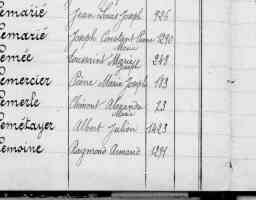 Lemarié Jean Louis Joseph 926
Lemarié Joseph Constant Pierre Marie 1290
Lemée Toussaint Marie Joseph 249
Lemercier Pierre Marie Joseph 183
Lemerle Clément Alexandre Marie 23
Lemétayer Albert Julien 1423
Lemoine Raymond Armand 1291